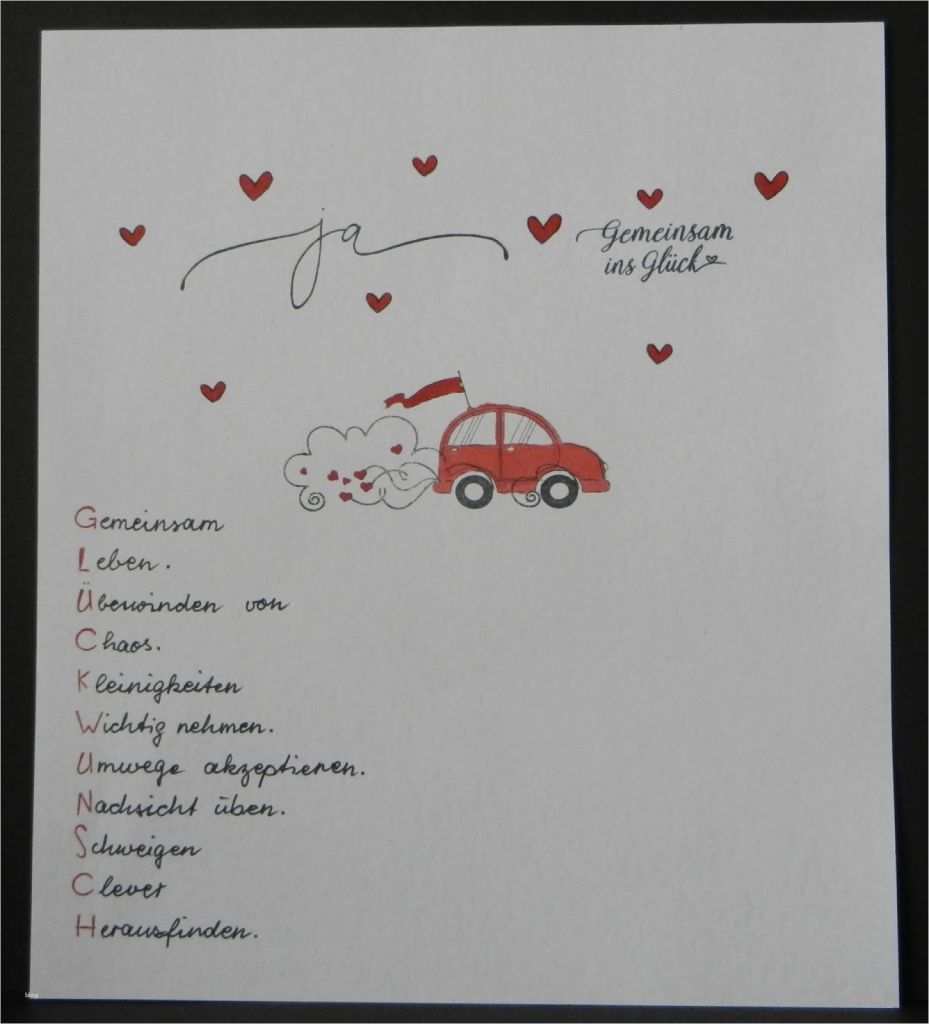 ja
Gemeinsam
ins Glück
Gemeinsam
Leben.
Überwinden von
Chaos.
Kleinigkeiten
Wichtig nehmen.
Umwege akzeptieren.
Nachsicht üben.
Schweigen
Clever
Herausfinden.